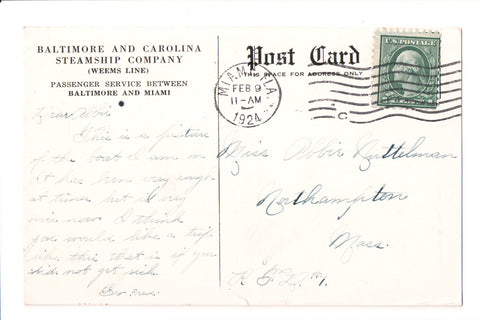 BALTIMORE AND CAROLINA
STEAMSHIP COMPANY
(WEEMS LINE)
PASSENGER SERVICE BETWEEN
BALTIMORE AND MIAMI
Post Card
THIS SPACE FOR ADDRESS ONLY
MIAMI, FLA.
FEB 9
11-AM
1924
C
U.S. POSTAGE
Dear
This is a picture
of the boat I am on
It has been very rough
at times but it is very
nice now I think
you would like a trip
like this that is if you
did not get sick.
Miss Abbie
Northampton
Mass.
R.F.D. #1.